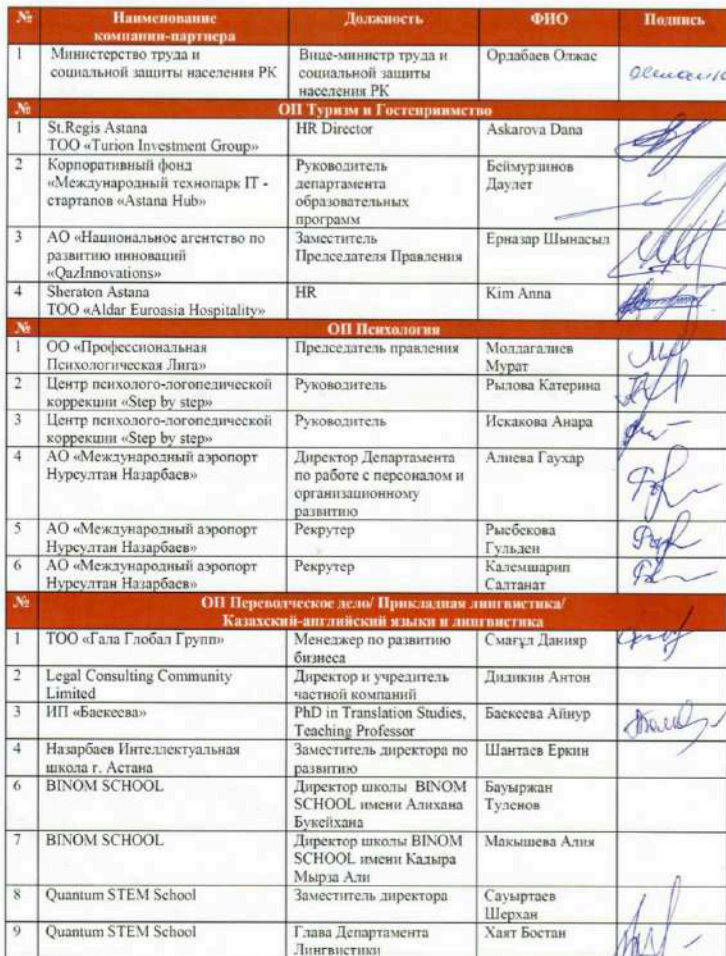 № Наименование компании-партнера Должность ФИО Подпись
1 Министерство труда и социальной защиты населения РК Вице-министр труда и социальной защиты населения РК Ордабаев Олжас
№ ОП Туризм и Гостеприимство
1 St.Regis Astana ТОО «Turion Investment Group» HR Director Askarova Dana
2 Корпоративный фонд «Международный технопарк IT - стартапов «Astana Hub» Руководитель департамента образовательных программ Беймурзинов Даулет
3 АО «Национальное агентство по развитию инноваций «QazInnovations» Заместитель Председателя Правления Ерназар Шынасыл
4 Sheraton Astana ТОО «Aldar Euroasia Hospitality» HR Kim Anna
№ ОП Психология
1 ОО «Профессиональная Психологическая Лига» Председатель правления Молдагалиев Мурат
2 Центр психолого-логопедической коррекции «Step by step» Руководитель Рылова Катерина
3 Центр психолого-логопедической коррекции «Step by step» Руководитель Искакова Анара
4 АО «Международный аэропорт Нурсултан Назарбаев» Директор Департамента по работе с персоналом и организационному развитию Алиева Гаухар
5 АО «Международный аэропорт Нурсултан Назарбаев» Рекрутер Рысбекова Гульден
6 АО «Международный аэропорт Нурсултан Назарбаев» Рекрутер Калемшарип Салтанат
№ ОП Переводческое дело/ Прикладная лингвистика/ Казахский-английский языки и лингвистика
1 ТОО «Гала Глобал Групп» Менеджер по развитию бизнеса Смағұл Данияр
2 Legal Consulting Community Limited Директор и учредитель частной компаний Дидикин Антон
3 ИП «Баекеева» PhD in Translation Studies, Teaching Professor Баекеева Айнур
4 Назарбаев Интеллектуальная школа г. Астана Заместитель директора по развитию Шантаев Еркин
6 BINOM SCHOOL Директор школы BINOM SCHOOL имени Алихана Букейхана Бауыржан Туленов
7 BINOM SCHOOL Директор школы BINOM SCHOOL имени Кадыра Мырза Али Макышева Алия
8 Quantum STEM School Заместитель директора Сауыртаев Шерхан
9 Quantum STEM School Глава Департамента Лингвистики Хаят Бостан